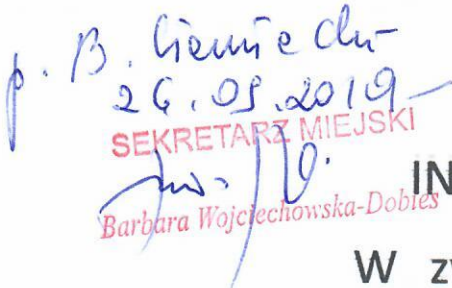 p. B.
26.09.2019
SEKRETARZ MIEJSKI
Barbara Wojciechowska-Dobies
IN
W zy